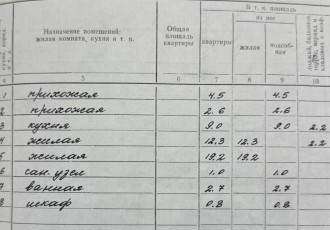 В т. ч. площадь
Назначение помещений: жилая комната, кухня и т. п.
Общая площадь квартиры
из нее
квартиры
жилая
подсобная
5 6 7 8 9 10
1 прихожая 4.5 4.5
2 прихожая 2.6 2.6
3 кухня 9.0 9.0 2.2
4 жилая 12.3 12.3 2.2
5 жилая 19.2 19.2
6 сан. узел 1.0 1.0
7 ванная 2.7 2.7
8 шкаф 0.8 0.8